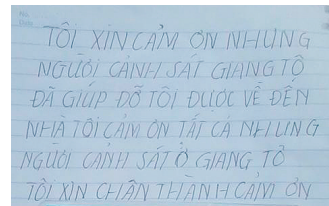 TÔI XIN CẢM ƠN NHUNG
NGƯỜI CẢNH SÁT GIANG TÔ
ĐÃ GIÚP ĐỠ TÔI ĐƯỢC VỀ ĐẾN
NHÀ TÔI CẢM ƠN TẤT CẢ NHUNG
NGƯỜI CẢNH SÁT Ở GIANG TÔ
TÔI XIN CHÂN THÀNH CẢM ƠN